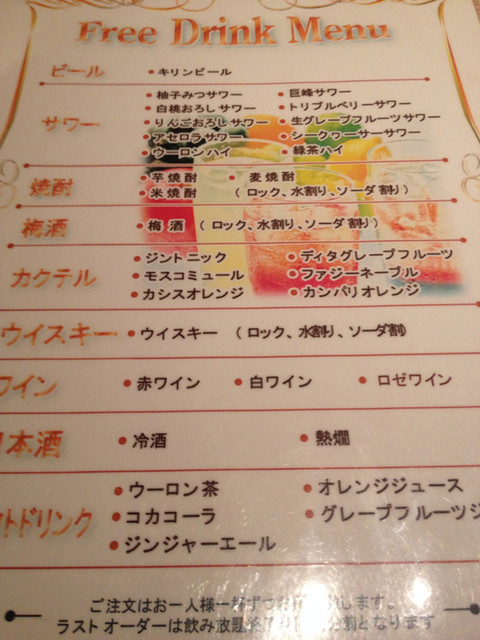 Free Drink Menu
ビール ・キリンビール
・柚子みつサワー ・巨峰サワー
・白桃おろしサワー ・トリプルベリーサワー
サワー ・りんごおろしサワー ・生グレープフルーツサワー
・アセロラサワー ・シークヮーサーサワー
・ウーロンハイ ・緑茶ハイ
焼酎 ・芋焼酎 ・麦焼酎
・米焼酎 (ロック、水割り、ソーダ割り)
梅酒 ・梅酒 (ロック、水割り、ソーダ割り)
・ジントニック ・ディタグレープフルーツ
カクテル ・モスコミュール ・ファジーネーブル
・カシスオレンジ ・カンパリオレンジ
ウイスキー ・ウイスキー (ロック、水割り、ソーダ割)
ワイン ・赤ワイン ・白ワイン ・ロゼワイン
本酒 ・冷酒 ・熱燗
・ウーロン茶 ・オレンジジュース
トドリンク ・コカコーラ ・グレープフルーツジ
・ジンジャーエール
ご注文はお一人様一杯ずつお します。
ラストオーダーは飲み放題 となります